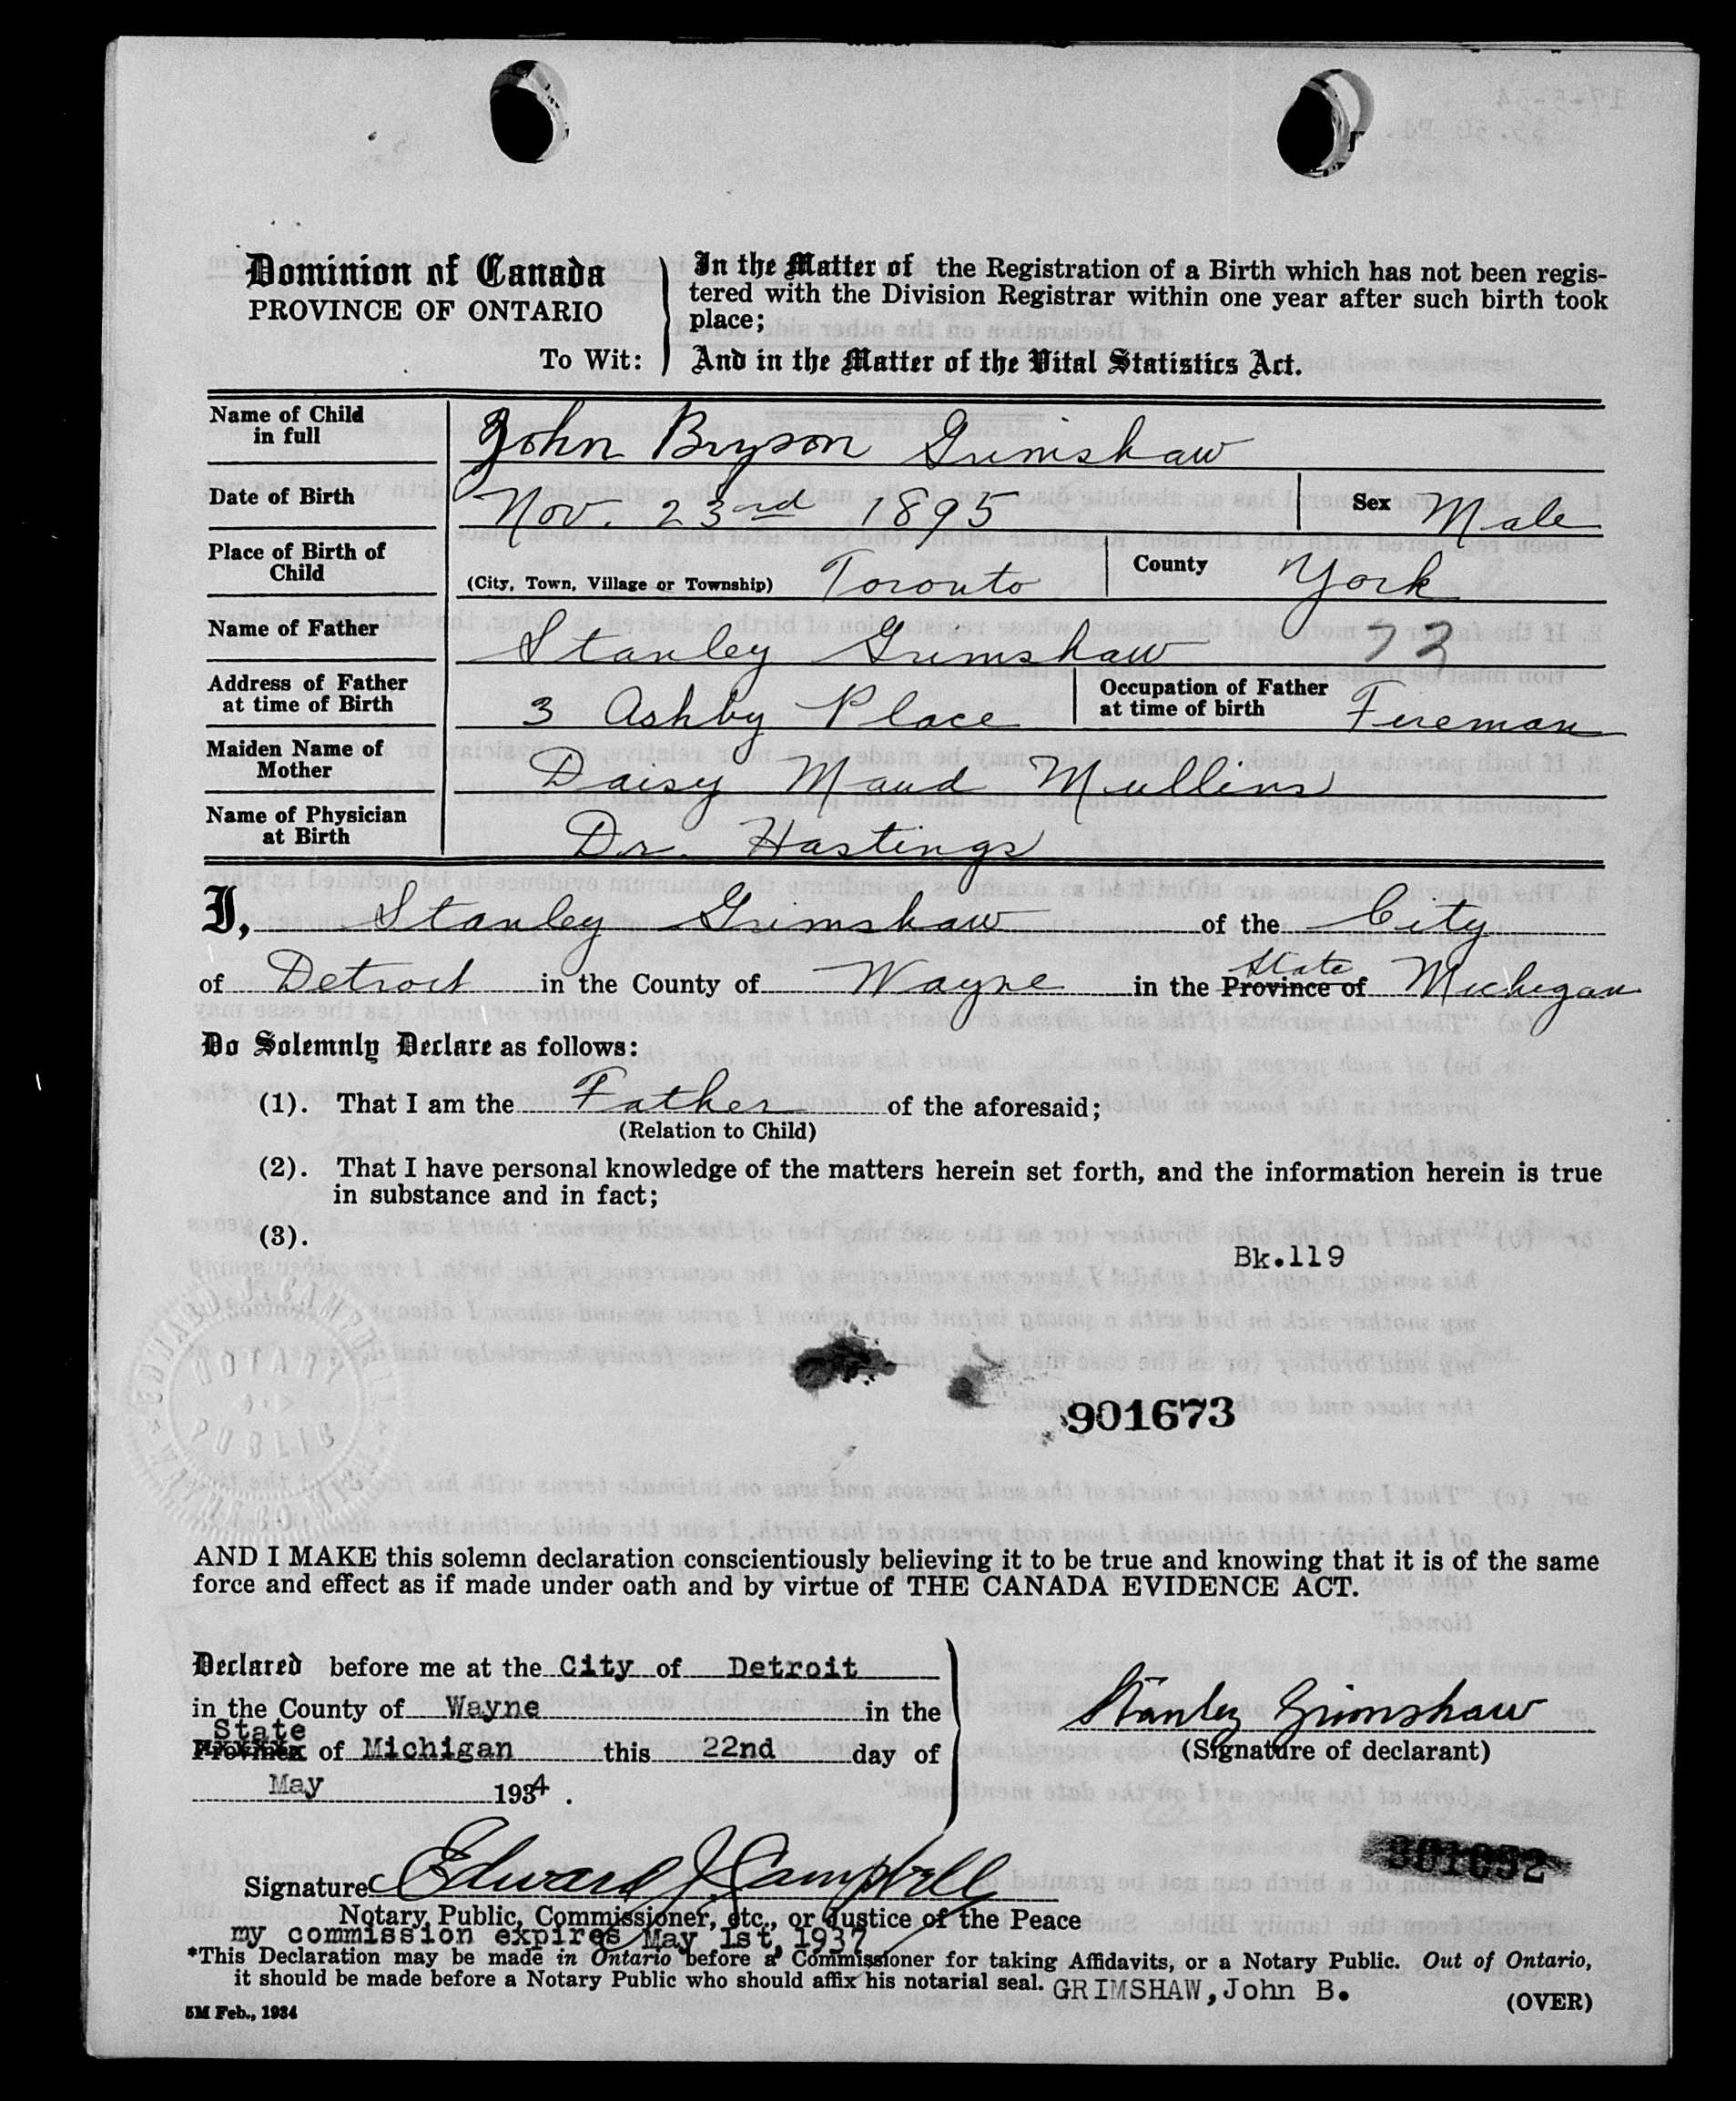 Dominion of Canada
PROVINCE OF ONTARIO
To Wit:
In the Matter of the Registration of a Birth which has not been regis-
tered with the Division Registrar within one year after such birth took
place;
And in the Matter of the Vital Statistics Act.
Name of Child in full John Bryson Grimshaw
Date of Birth Nov. 23rd 1895 Sex Male
Place of Birth of Child (City, Town, Village or Township) Toronto County York
Name of Father Stanley Grimshaw 73
Address of Father at time of Birth 3 Ashby Place Occupation of Father at time of birth Fireman
Maiden Name of Mother Daisy Maud Mullins
Name of Physician at Birth Dr. Hastings
I, Stanley Grimshaw of the City
of Detroit in the County of Wayne in the Province of State Michigan
Do Solemnly Declare as follows:
(1). That I am the Father of the aforesaid;
(Relation to Child)
(2). That I have personal knowledge of the matters herein set forth, and the information herein is true
in substance and in fact;
(3).
Bk.119
NOTARY
PUBLIC
901673
AND I MAKE this solemn declaration conscientiously believing it to be true and knowing that it is of the same
force and effect as if made under oath and by virtue of THE CANADA EVIDENCE ACT.
Declared before me at the City of Detroit
in the County of Wayne in the
State
Province of Michigan this 22nd day of
May 1934.
Stanley Grimshaw
(Signature of declarant)
Signature Edward J Campbell
Notary Public, Commissioner, etc., or Justice of the Peace
my commission expires May 1st, 1937
*This Declaration may be made in Ontario before a Commissioner for taking Affidavits, or a Notary Public. Out of Ontario,
it should be made before a Notary Public who should affix his notarial seal. GRIMSHAW, John B.
5M Feb., 1934
(OVER)